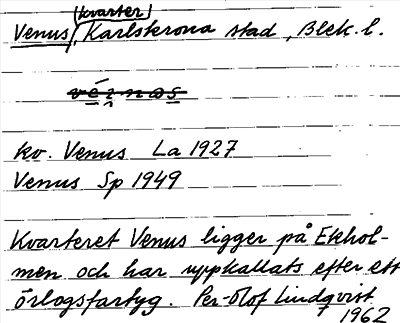 kvarter
Venus, Karlskrona stad, Blek. l.
kv. Venus La 1927
Venus Sp 1949
Kvarteret Venus ligger på Ekhol-
men och har uppkallats efter ett
örlogsfartyg. Per-Olof Lindqvist
1962